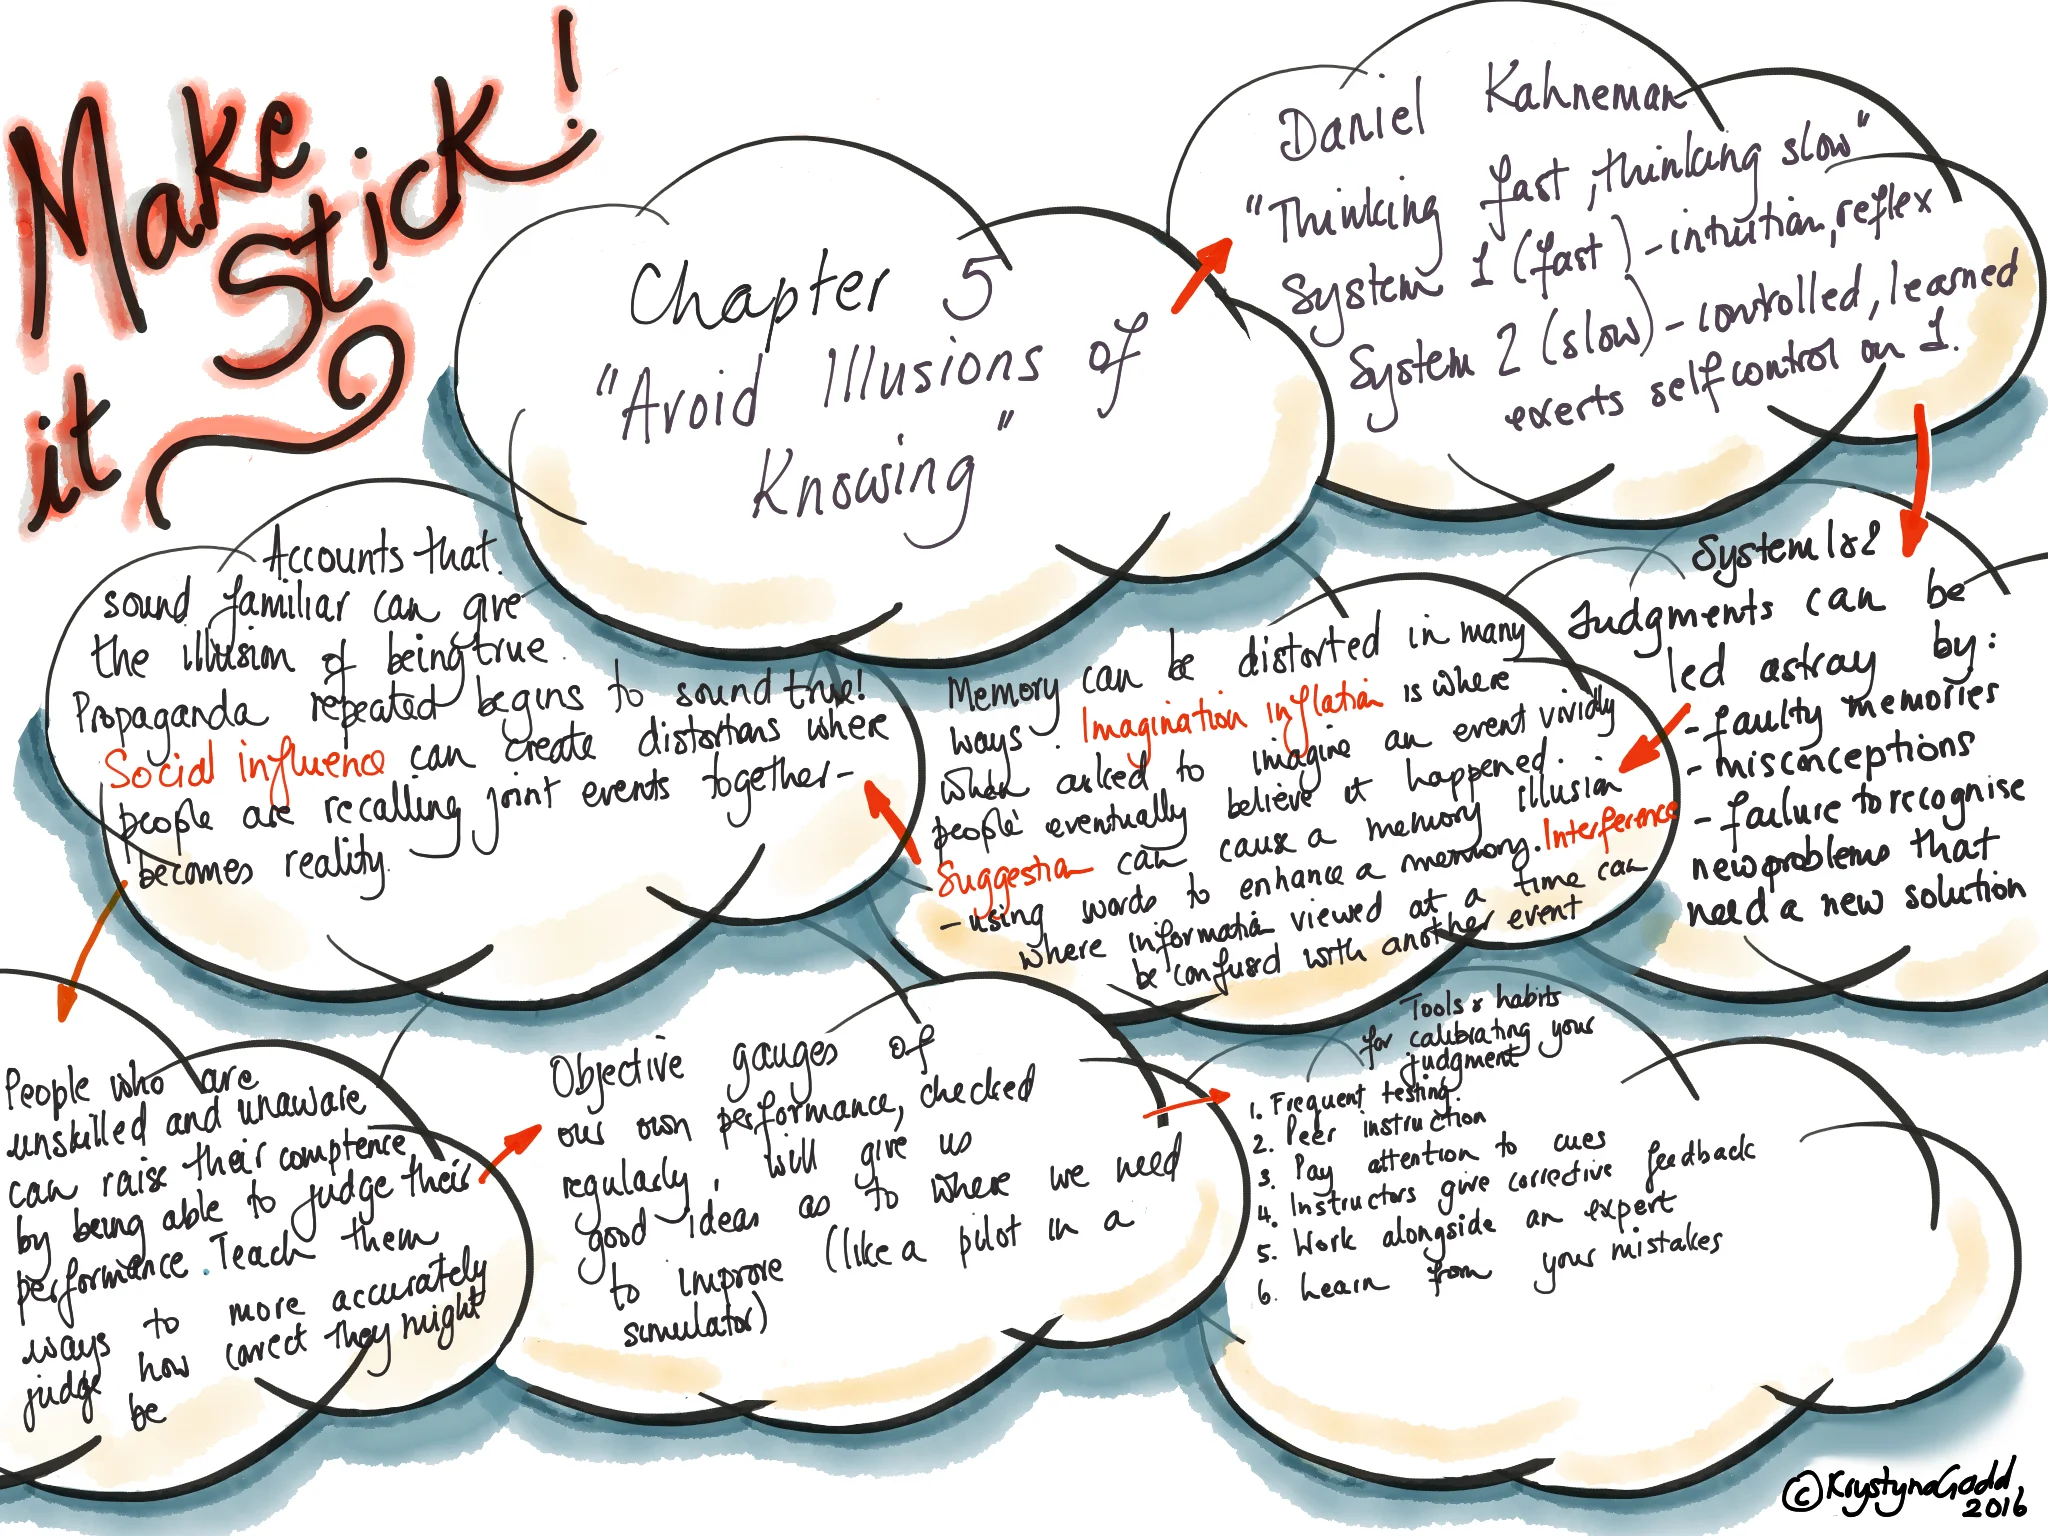 Make
Stick!
it
Chapter 5
"Avoid Illusions of
Knowing"
Daniel Kahneman
"Thinking fast, thinking slow"
System 1 (fast) - intuition, reflex
System 2 (slow) - controlled, learned
exerts self control on 1.
System 1 & 2
Judgments can be
led astray by:
- faulty memories
- misconceptions
- failure to recognise
new problems that
need a new solution
Memory can be distorted in many
ways. Imagination inflation is where
when asked to imagine an event vividly
people eventually believe it happened.
Suggestion can cause a memory illusion
- using words to enhance a memory. Interference
where information viewed at a time can
be confused with another event
Accounts that
sound familiar can give
the illusion of being true.
Propaganda repeated begins to sound true!
Social influence can create distortions where
people are recalling joint events together -
becomes reality.
People who are
unskilled and unaware
can raise their comptence
by being able to judge their
performance. Teach them
ways to more accurately
judge how correct they might
be
Objective gauges of
our own performance, checked
regularly, will give us
good ideas as to where we need
to improve (like a pilot in a
simulator)
Tools & habits
for calibrating your
judgment
1. Frequent testing.
2. Peer instruction
3. Pay attention to cues
4. Instructors give corrective feedback
5. Work alongside an expert
6. Learn from your mistakes
©KrystynaGadd
2016